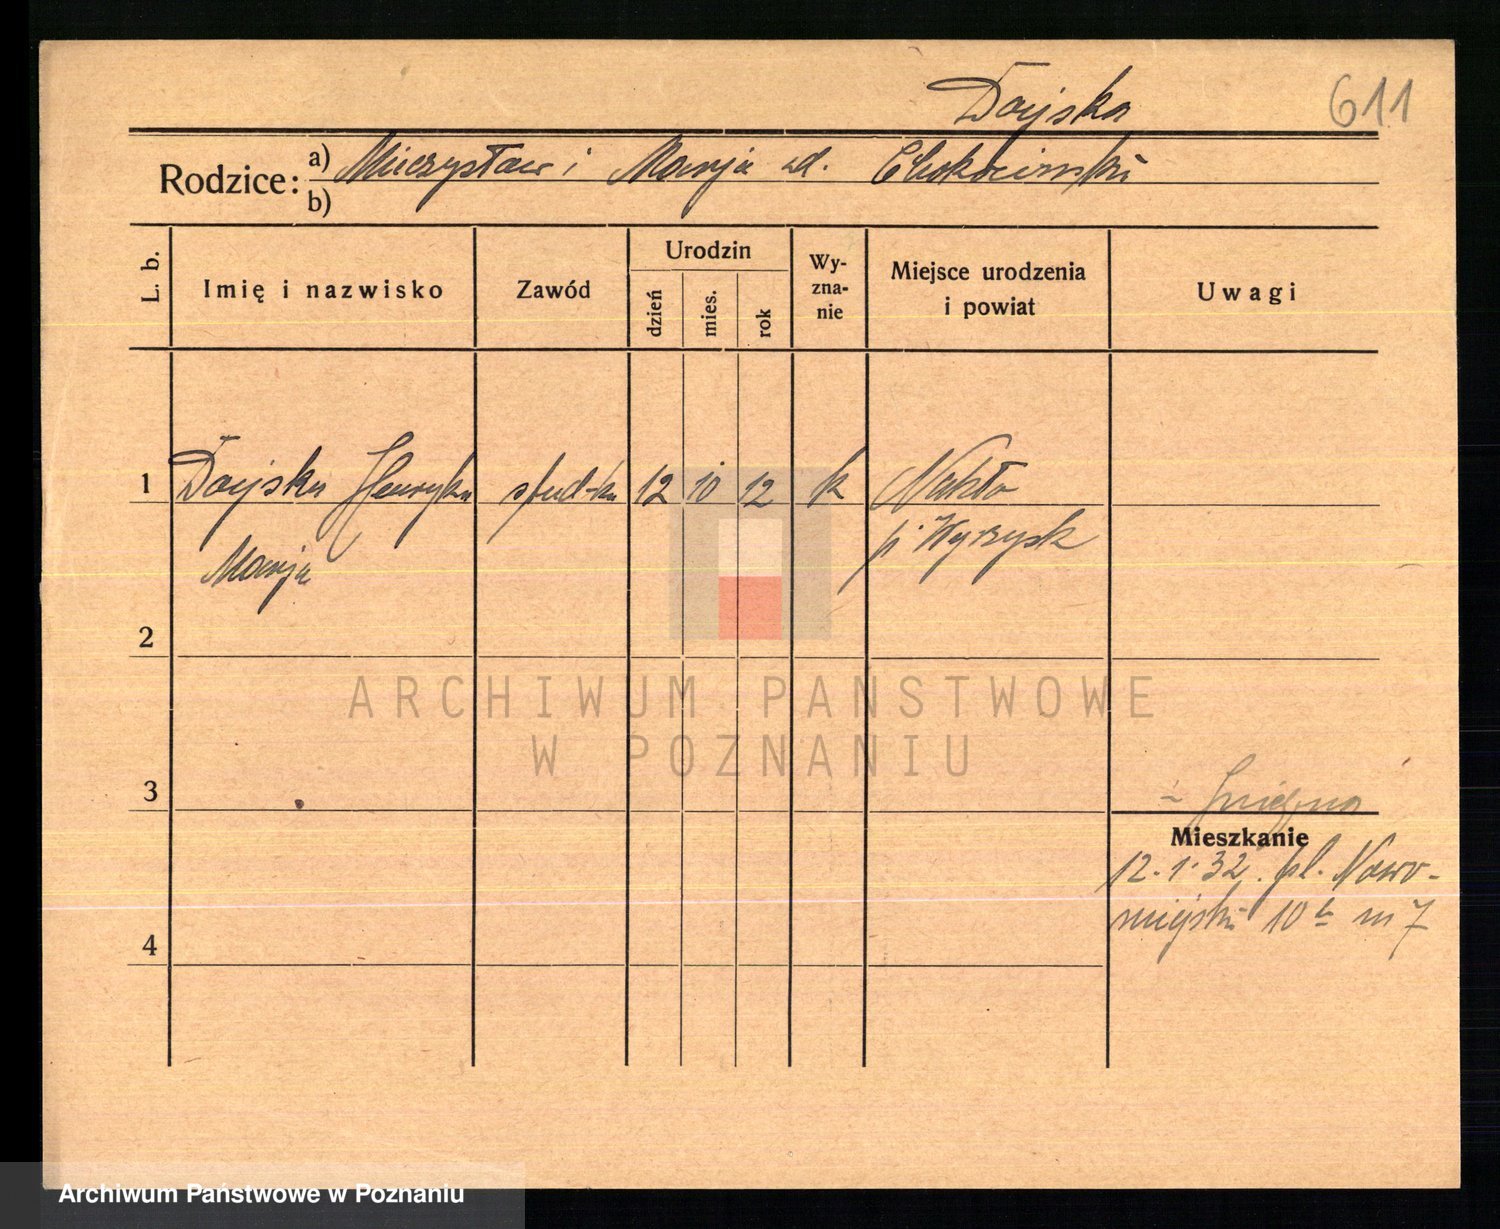 Dojska 611
Rodzice:
a) Mieczysław i Marja zd. Chokocimski
b)
L. b.
Imię i nazwisko
Zawód
Urodzin
dzień
mies.
rok
Wy-
zna-
nie
Miejsce urodzenia
i powiat
Uwagi
1 Dojska Henryka stud-ka 12 10 12 k Nakło
Marja p. Wyrzysk
2
3
4
Mieszkanie
12.1.32. pl. Nowo-
miejski 10 b m 7
ARCHIWUM PAŃSTWOWE
W POZNANIU
Archiwum Państwowe w Poznaniu